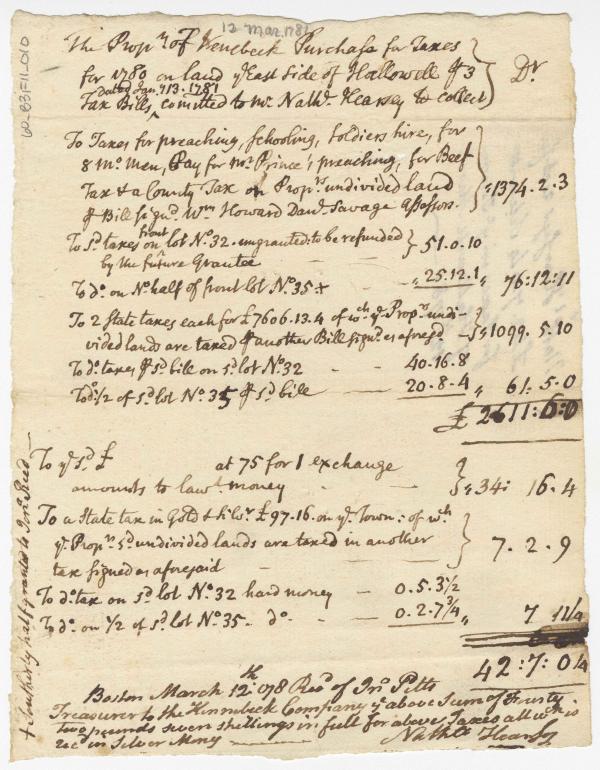 12 Mar. 1781
60-831-11-010
The Propr's of Kenebeck Purchase for Taxes
for 1780 on land ye East Side of Hallowell & 3
Dated Jan. 913. 1781
Tax Bills ^ comitted to Mr. Nathl. Hearsey to collect } Dr.
To Taxes for preaching, schooling, soldiers hire, for
8 Mo. Men, Pay for Mr Prince's preaching, for Beef
Tax & a County Tax on Propr's undivided land
& Bill signd. Wm Howard Danl. Savage Assessors. } 1374.2.3
To sd. taxes on front lot No. 32. ungranted to be refunded } 51.0.10
by the future Grantee
To do. on No. half of front lot No. 35 + - - 25.12.1 76:12:11
To 2 State taxes each for £7606.13.4 of wch ye Propr's undi-
vided lands are taxed & another Bill signd. as aforesd - 1099.5.10
To do. taxes & sd. bill on sd. lot No. 32 - - 40.16.8
To do. 1/2 of sd. lot No. 35 & sd. bill - 20.8.4 61.5.0
£ 2611:6:0
To ye sd. £ at 75 for 1 exchange
amounts to lawl. money } 34: 16.4
To a State tax in Gold & Silvr. £97.16. on ye Town: of wch
ye Propr's sd. undivided lands are taxed in another
tax signed as aforesaid } 7.2.9
To do. tax on sd. lot No. 32 hard money - 0.5.3 1/2
To do. on 1/2 of sd. lot No. 35 - do. - 0.2.7 3/4 7 11 1/4
42:7:0 1/4
+ Southerly half granted to Jno. Reed
Boston March 12th. 178 Recd. of Jno. Pitts
Treasurer to the Kennebeck Company ye above Sum of Fourty
two pounds seven shellings in full for above Taxes all wch is
recd in Silver Mony
Nathl. Hearsey